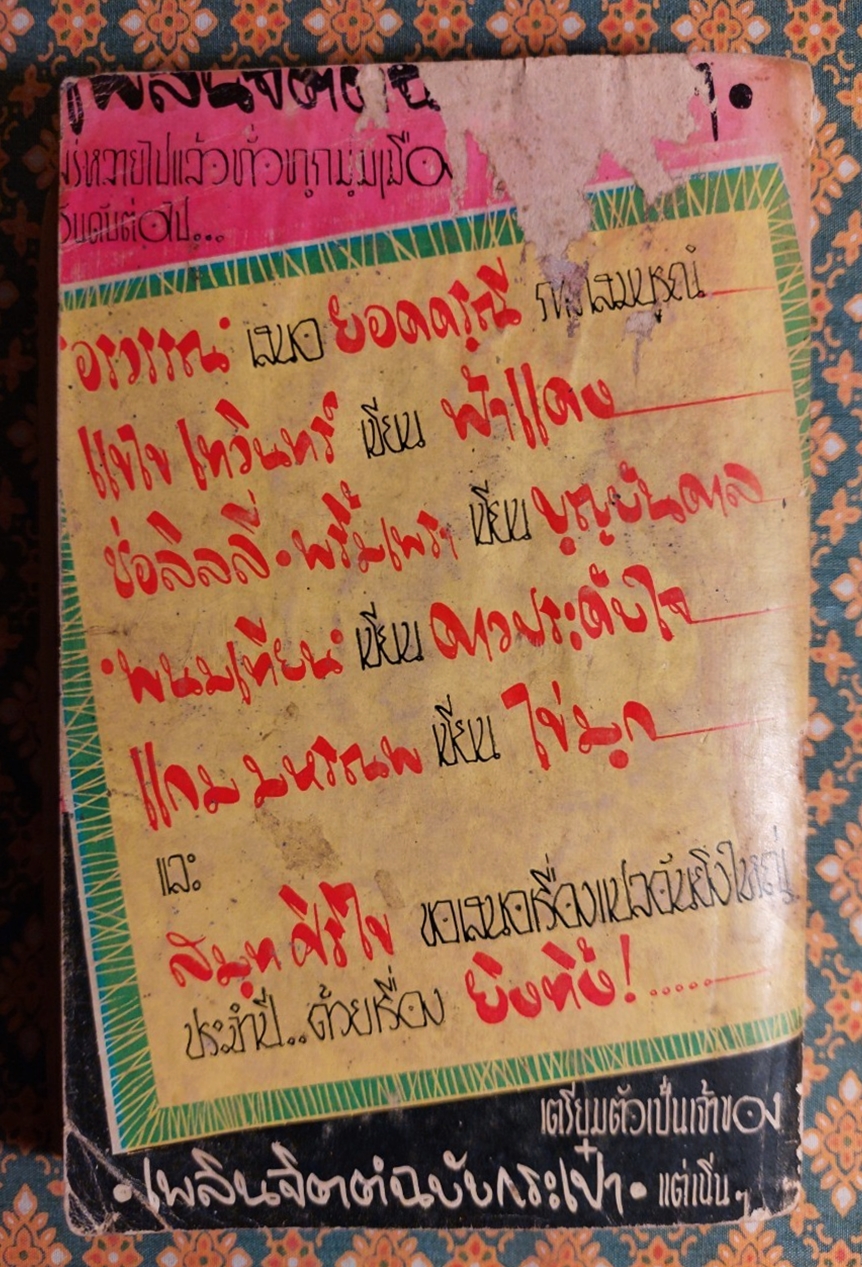 เพลินจิตต์
แพร่หลายไปแล้วทั่วทุกมุมเมือง
อันดับต่อไป...
"อรวรรณ" เสนอ ยอดดรุณี ภาคสมบูรณ์
แขไข เทวินทร์ เขียน ฟ้าแดง
ช่อลิลลี่·พริ้มเพรา เขียน บุญบันดาล
"พนมเทียน" เขียน ดาวประดับใจ
แถมมหรณพ เขียน ไข่มุก
และ
สมุท ศิริไข ขอเสนอเรื่องแปลอันยิ่งใหญ่
ประจำปี..ด้วยเรื่อง ยิงทิ้ง!......
เตรียมตัวเป็นเจ้าของ
·เพลินจิตต์ฉบับกระเป๋า· แต่เนิ่นๆ